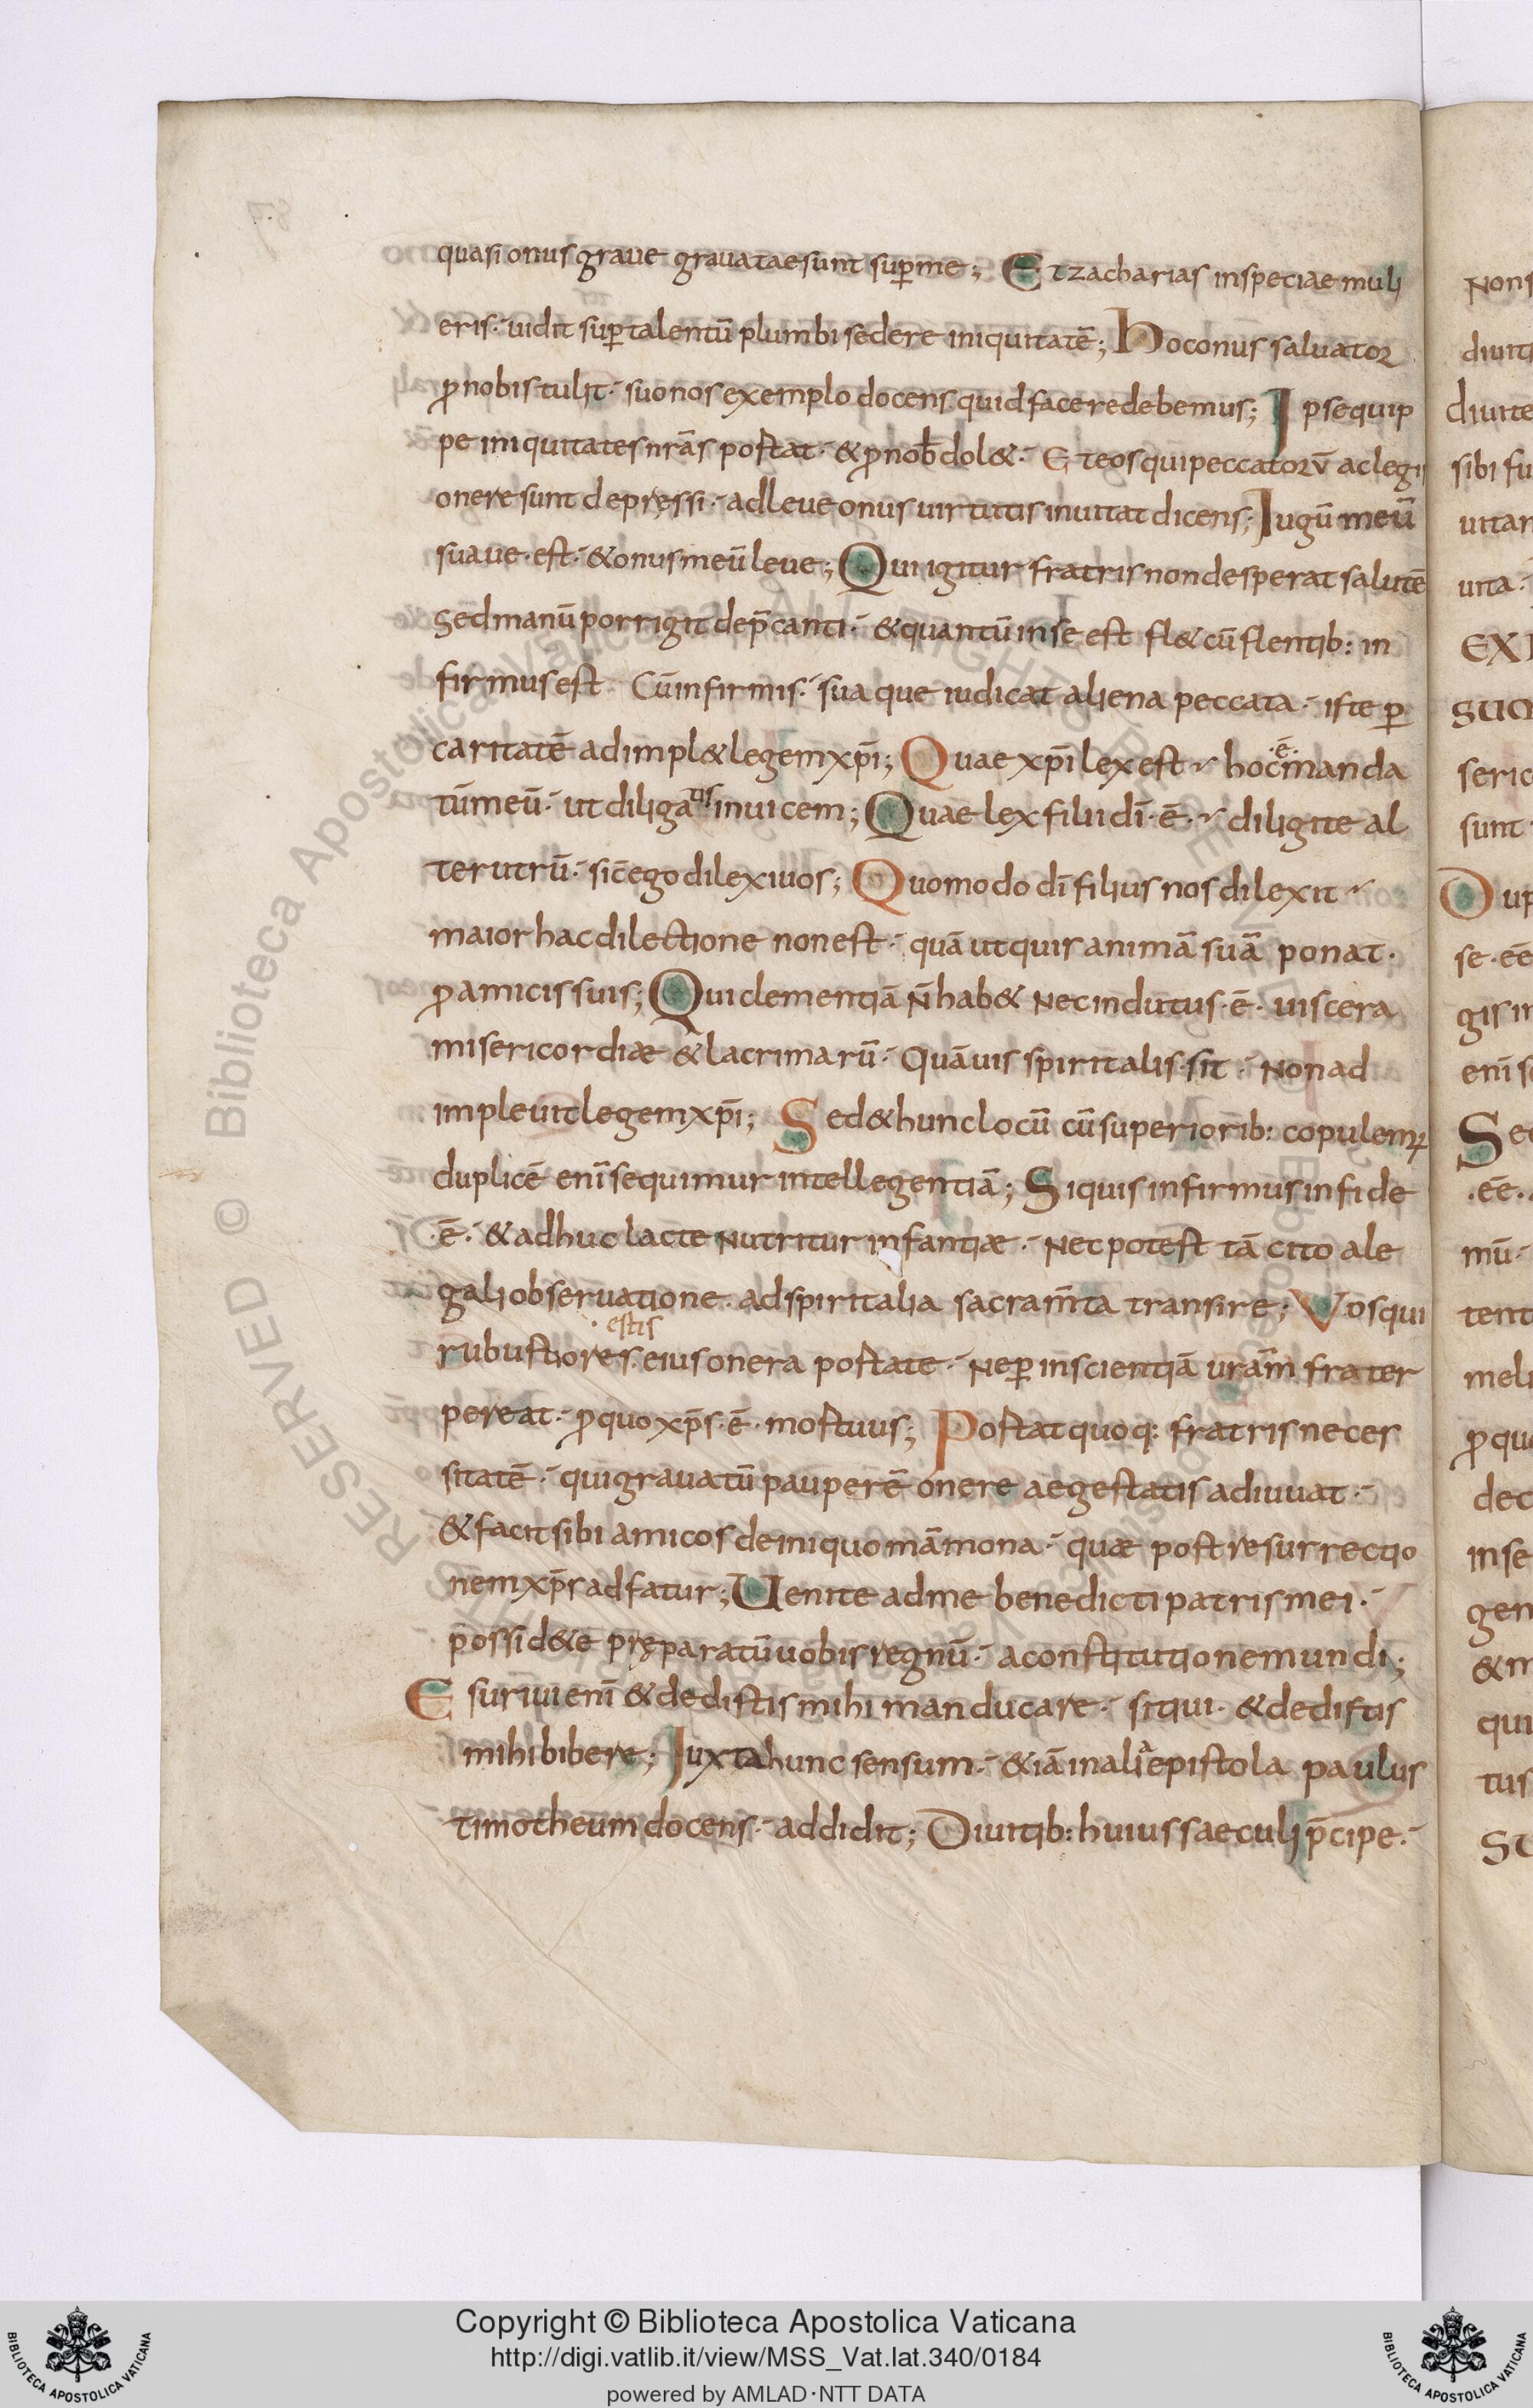 quasi onus graue grauatae sunt sup̄ me; Et zacharias in speciae muli
eris· uidit sup̄ talentū plumbi sedere iniquitatē; Hoc onus saluator
ꝓ nobis tulit· suo nos exemplo docens quid facere debemus; Ipse quip
pe iniquitates nrās portat· & ꝓ nob̄ dol&· Et eos qui peccatorū ac legis
onere sunt depressi· ad leue onus uirtutis inuitat dicens; Iugū meū
suaue·est· & onus meū leue; Qui igitur fratris non desperat salutē
sed manū porrigit dep̄canti· & quantū in se est fl& cū flentib: in
firmus est Cū infirmis· suaque iudicat aliena peccata· iste ꝑ
caritatē adimpl& legem xp̄i; Quae xp̄i lex est hoc ·ē· manda
tū meū· ut diligatis inuicem; Quae lex filii dī·ē· diligite al
terutrū· sic̄ ego dilexi uos; Quomodo dī filius nos dilexit
maior hac dilectione non est· quā ut quis animā suā ponat·
ꝓ amicis suis; Qui clementiā n̄ hab& nec indutus·ē· uiscera
misericordiæ & lacrimarū· Quāuis spiritalis·sit· Non ad
impleuit legem xp̄i; Sed & hunc locū cū superiorib: copulemꝰ
duplicē enī sequimur intellegentiā; Si quis infirmus in fide
·ē· & adhuc lacte nutritur infantiæ· nec potest tā cito ale
gali obseruatione· ad spiritalia sacram̄ta transire; Vos qui
rubustiores· estis eius onera portate· ne ꝑ inscientiā urām frater
pereat· ꝓ quo xp̄s·ē·mortuus; Portat quoq: fratris neces
sitatē· qui grauatū pauperē onere aegestatis adiuuat·
& facit sibi amicos de iniquo māmona· quæ post resurrectio
nem xp̄s adfatur; Uenite ad me benedicti patris mei·
possid&e præparatū uobis regnū· a constitutione mundi;
Esuriui enī & dedistis mihi manducare· sitiui· & dedistis
mihi bibere; Iuxta hunc sensum· &iā in alia epistola paulus
timotheum docens· addidit; Diuitib: huius saeculi p̄cipe·
Copyright © Biblioteca Apostolica Vaticana
http://digi.vatlib.it/view/MSS_Vat.lat.340/0184
powered by AMLAD·NTT DATA